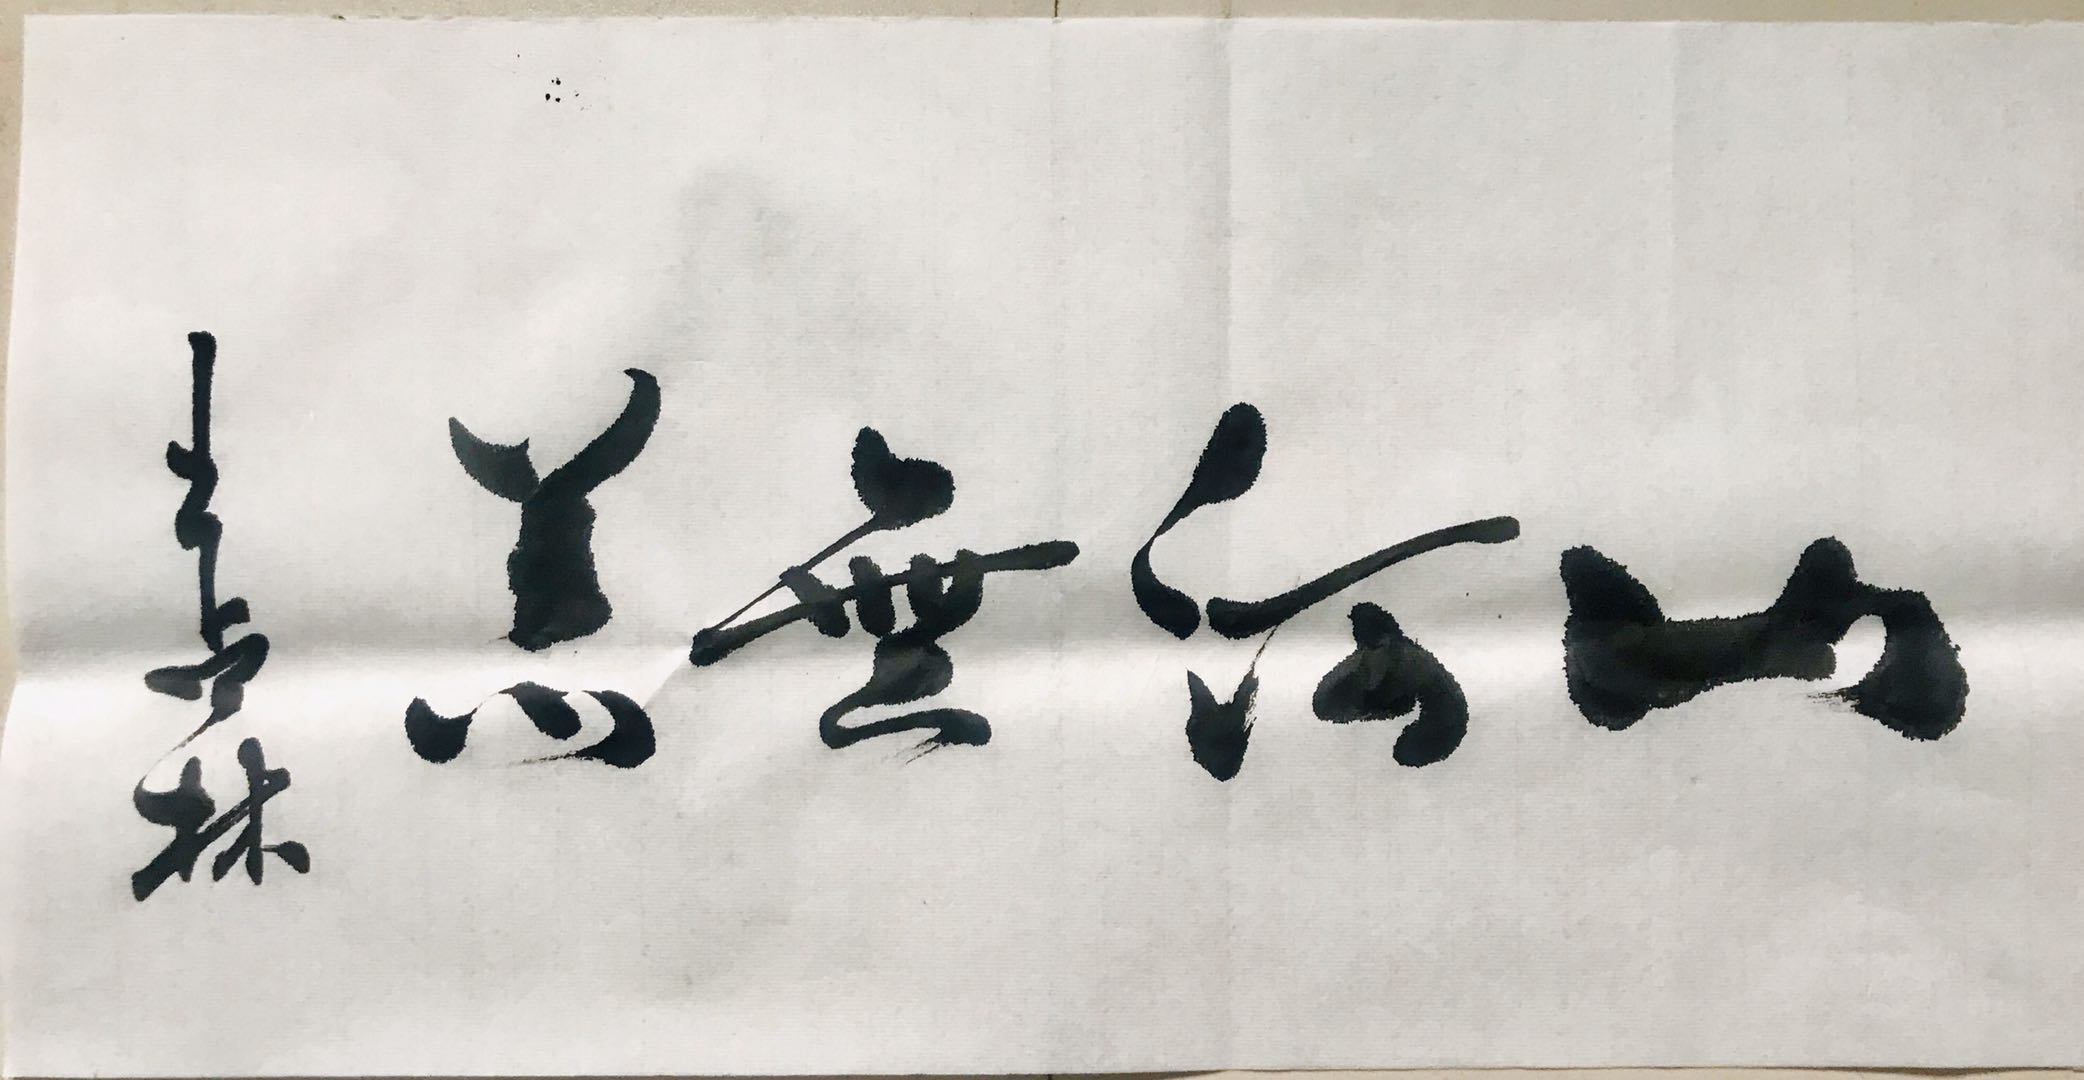 山河無恙